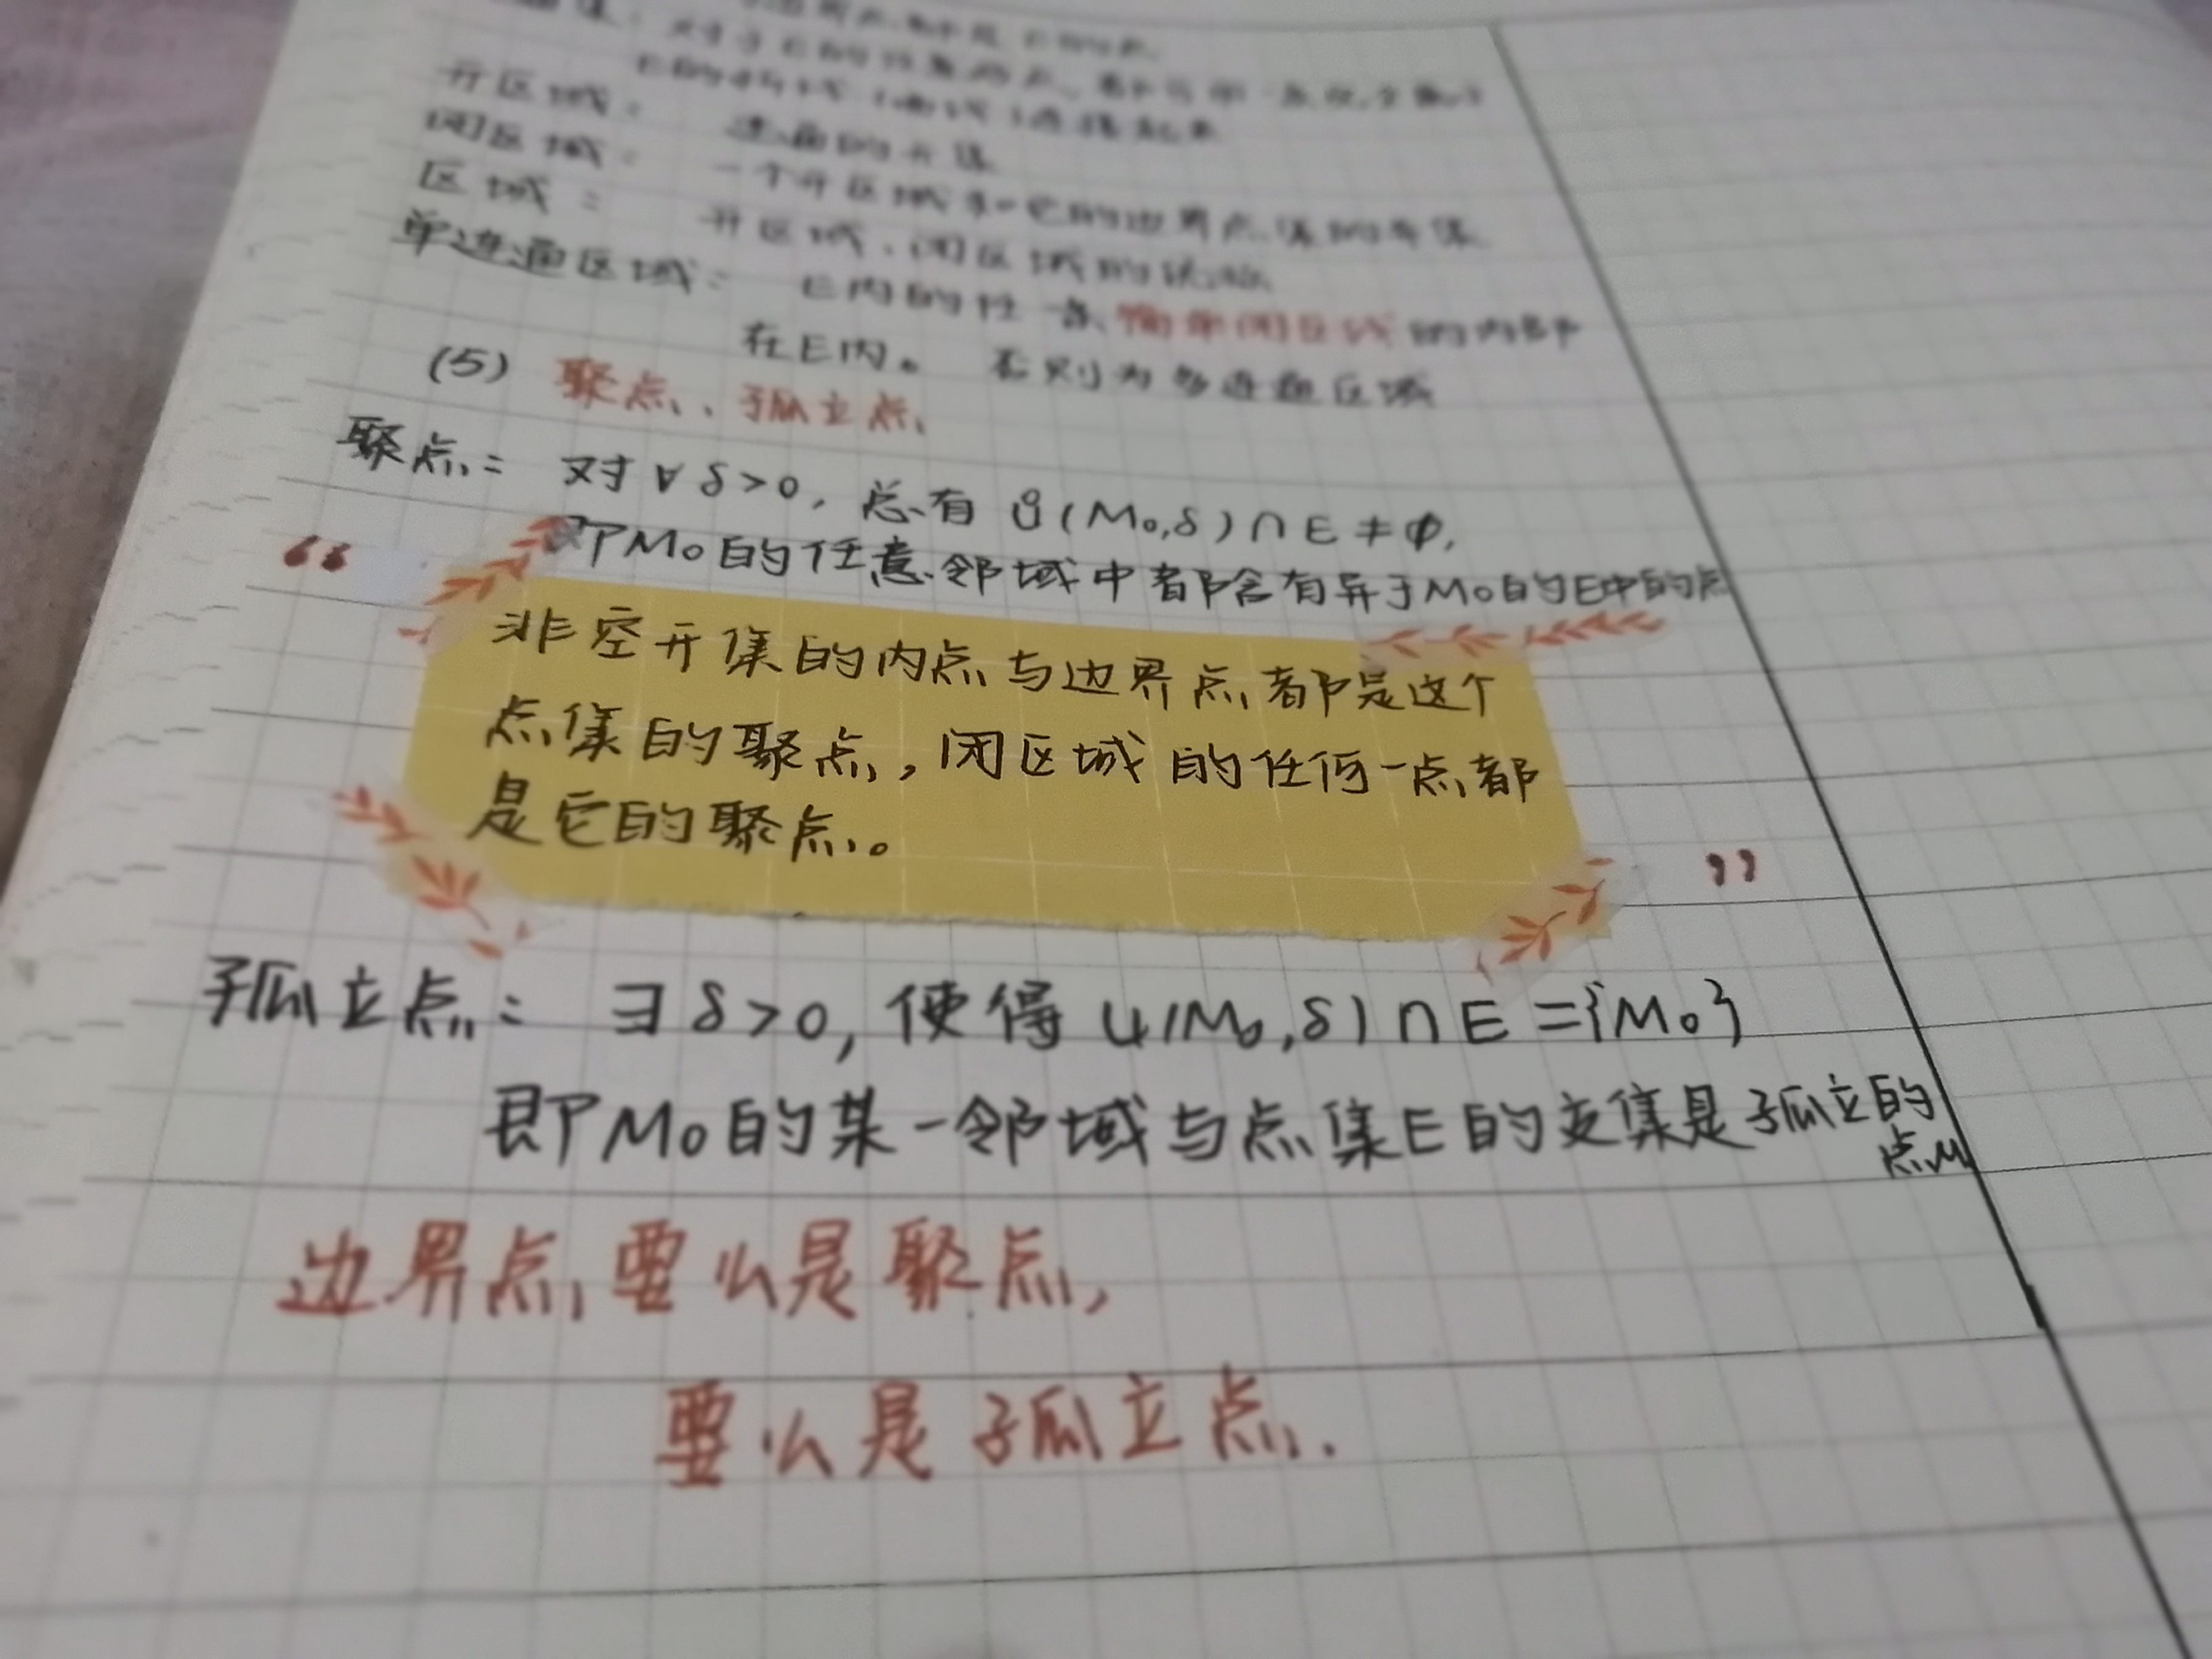 对于E的任意两点,都可用一条完全属于
E的折线(曲线)连接起来
开区域: 连通的开集
闭区域: 一个开区域和它的边界点集的并集
区域: 开区域、闭区域的统称
单连通区域: E内的任一条简单闭曲线的内部
在E内。 否则为多连通区域
(5) 聚点、孤立点
聚点: 对∀δ>0, 总有 Ů(M₀,δ)∩E≠φ,
即M₀的任意邻域中都含有异于M₀的E中的点
“
非空开集的内点与边界点都是这个
点集的聚点,闭区域的任何一点都
是它的聚点。
”
孤立点: ∃δ>0,使得 U(M₀,δ)∩E={M₀}
即M₀的某一邻域与点集E的交集是孤立的
点M
边界点要么是聚点,
要么是孤立点.